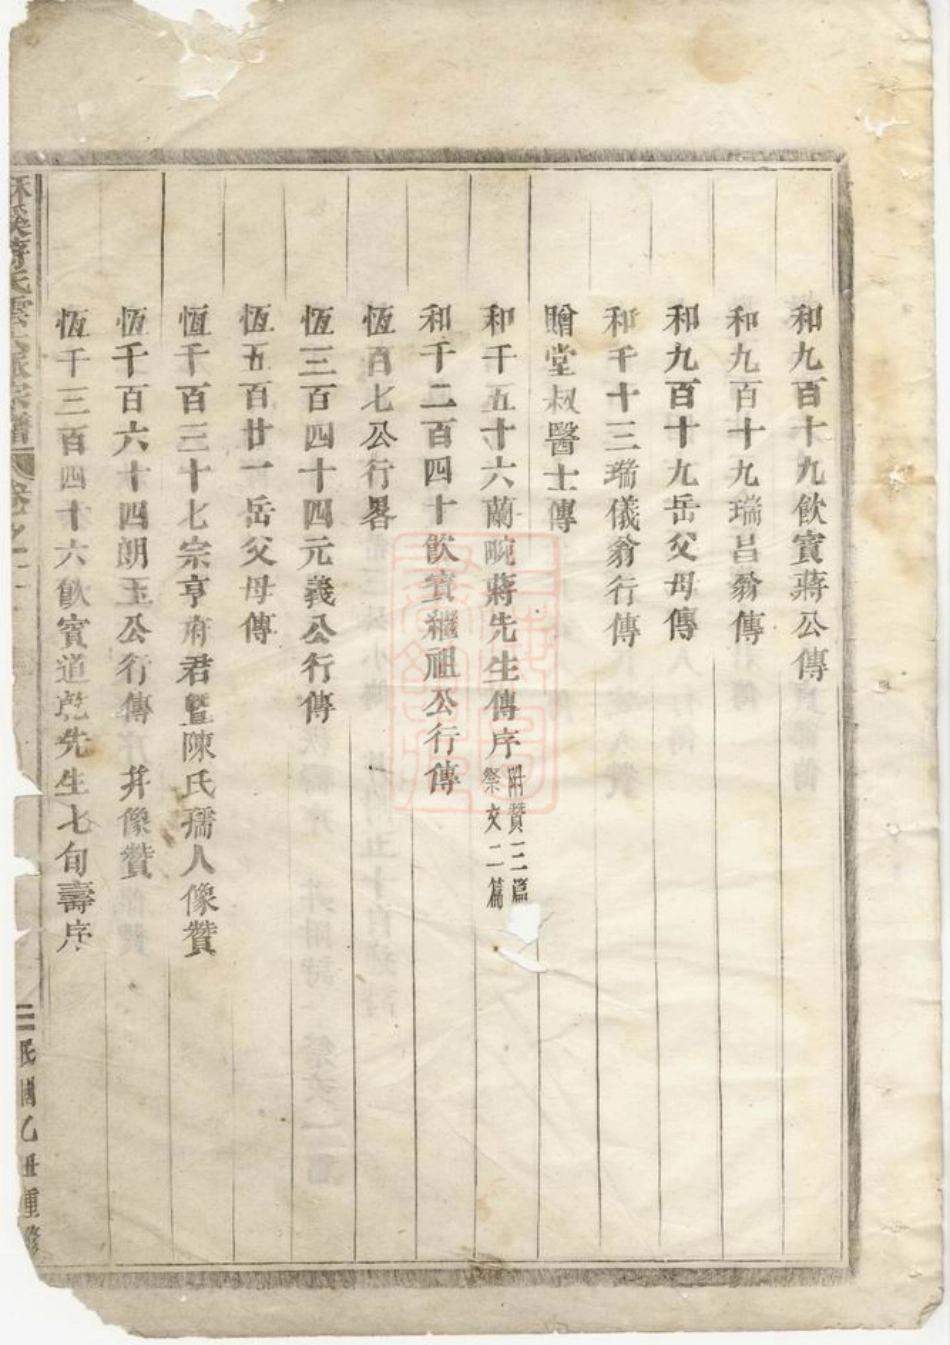 和九百十九飲賓蔣公傳
和九百十九瑞昌翁傳
和九百十九岳父母傳
和千十三瑞儀翁行傳
贈堂叔醫士傳
和千五十六蘭畹蔣先生傳序 附贊三篇 祭文二篇
和千二百四十飲賓繼祖公行傳
恆百七公行畧
恆三百四十四元義公行傳
恆五百廿一岳父母傳
恆千百三十七宗亨府君暨陳氏孺人像贊
恆千百六十四朗玉公行傳 并像贊
恆千三百四十六飲賓道乾先生七旬壽序
溪蔣氏雲派宗譜 卷之一 民國乙丑重修